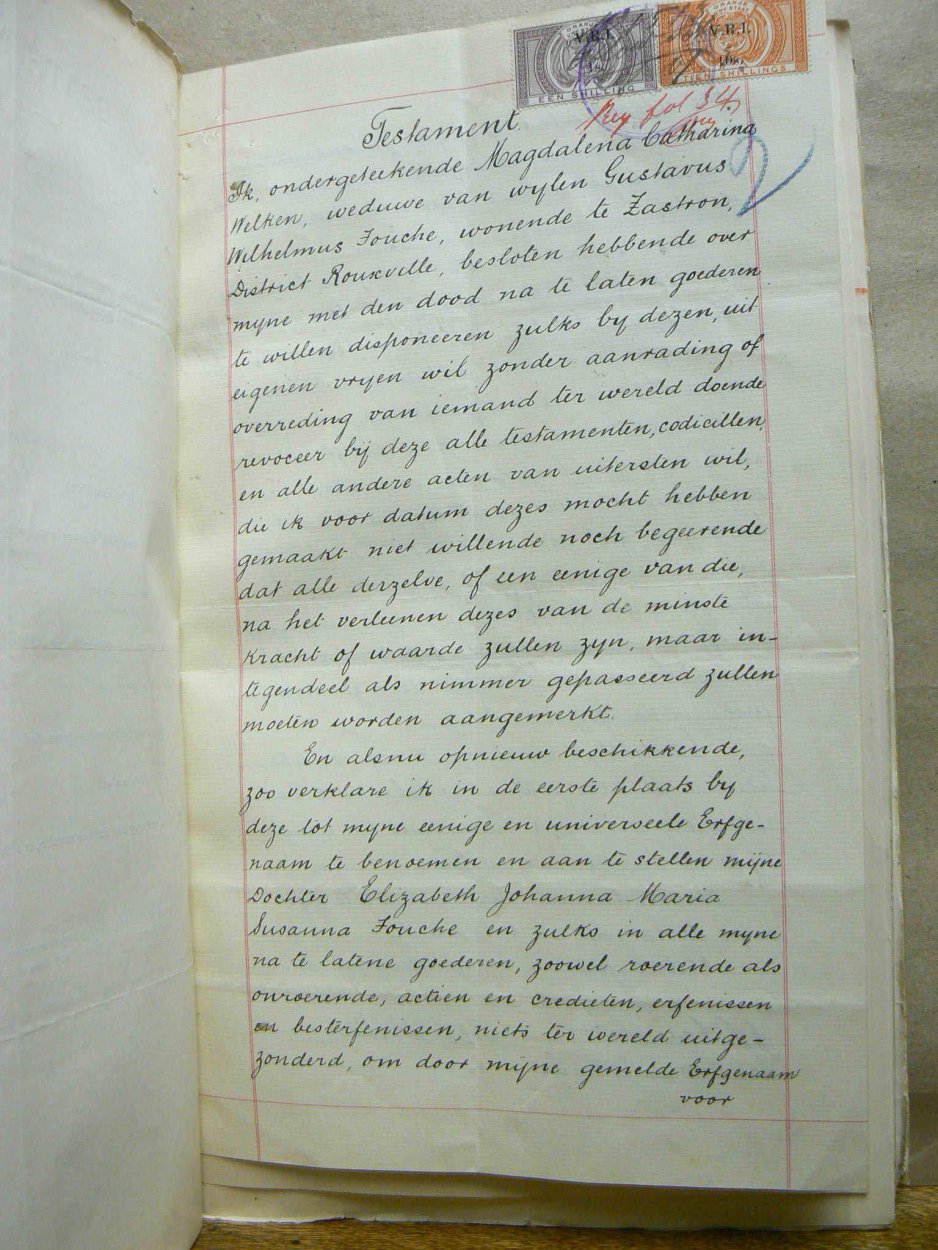 ORANJE VRYSTAAT
V.R.I.
EEN SHILLING
ORANJE VRYSTAAT
V.R.I.
TIEN SHILLINGS
Reg fol 34
2
Testament.
Ik, ondergeteekende Magdalena Catharina
Welken, weduwe van wylen Gustavus
Wilhelmus Fouche, wonende te Zastron,
District Rouxville, besloten hebbende over
myne met den dood na te laten goederen
te willen disponeeren zulks by dezen, uit
eigenen vryen wil zonder aanrading of
overreding van iemand ter wereld doende
revoceer bij deze alle testamenten, codicillen,
en alle andere acten van uitersten wil,
die ik voor datum dezes mocht hebben
gemaakt niet willende noch begeerende
dat alle derzelve, of een eenige van die,
na het verleenen dezes van de minste
kracht of waarde zullen zyn, maar in-
tegendeel als nimmer gepasseerd zullen
moeten worden aangemerkt.
En alsnu opnieuw beschikkende,
zoo verklare ik in de eerste plaats by
deze tot myne eenige en universeele Erfge-
naam te benoemen en aan te stellen mijne
Dochter Elizabeth Johanna Maria
Susanna Fouche en zulks in alle myne
na te latene goederen, zoowel roerende als
onroerende, actien en credieten, erfenissen
en besterfenissen, niets ter wereld uitge-
zonderd, om door mijne gemelde Erfgenaam
voor